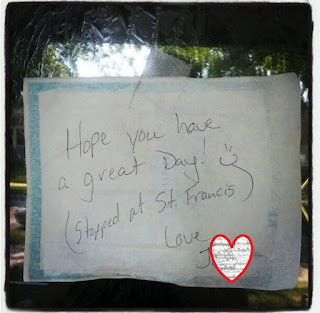 Hope you have
a great Day! :)
(Stopped at St. Francis)
Love
J